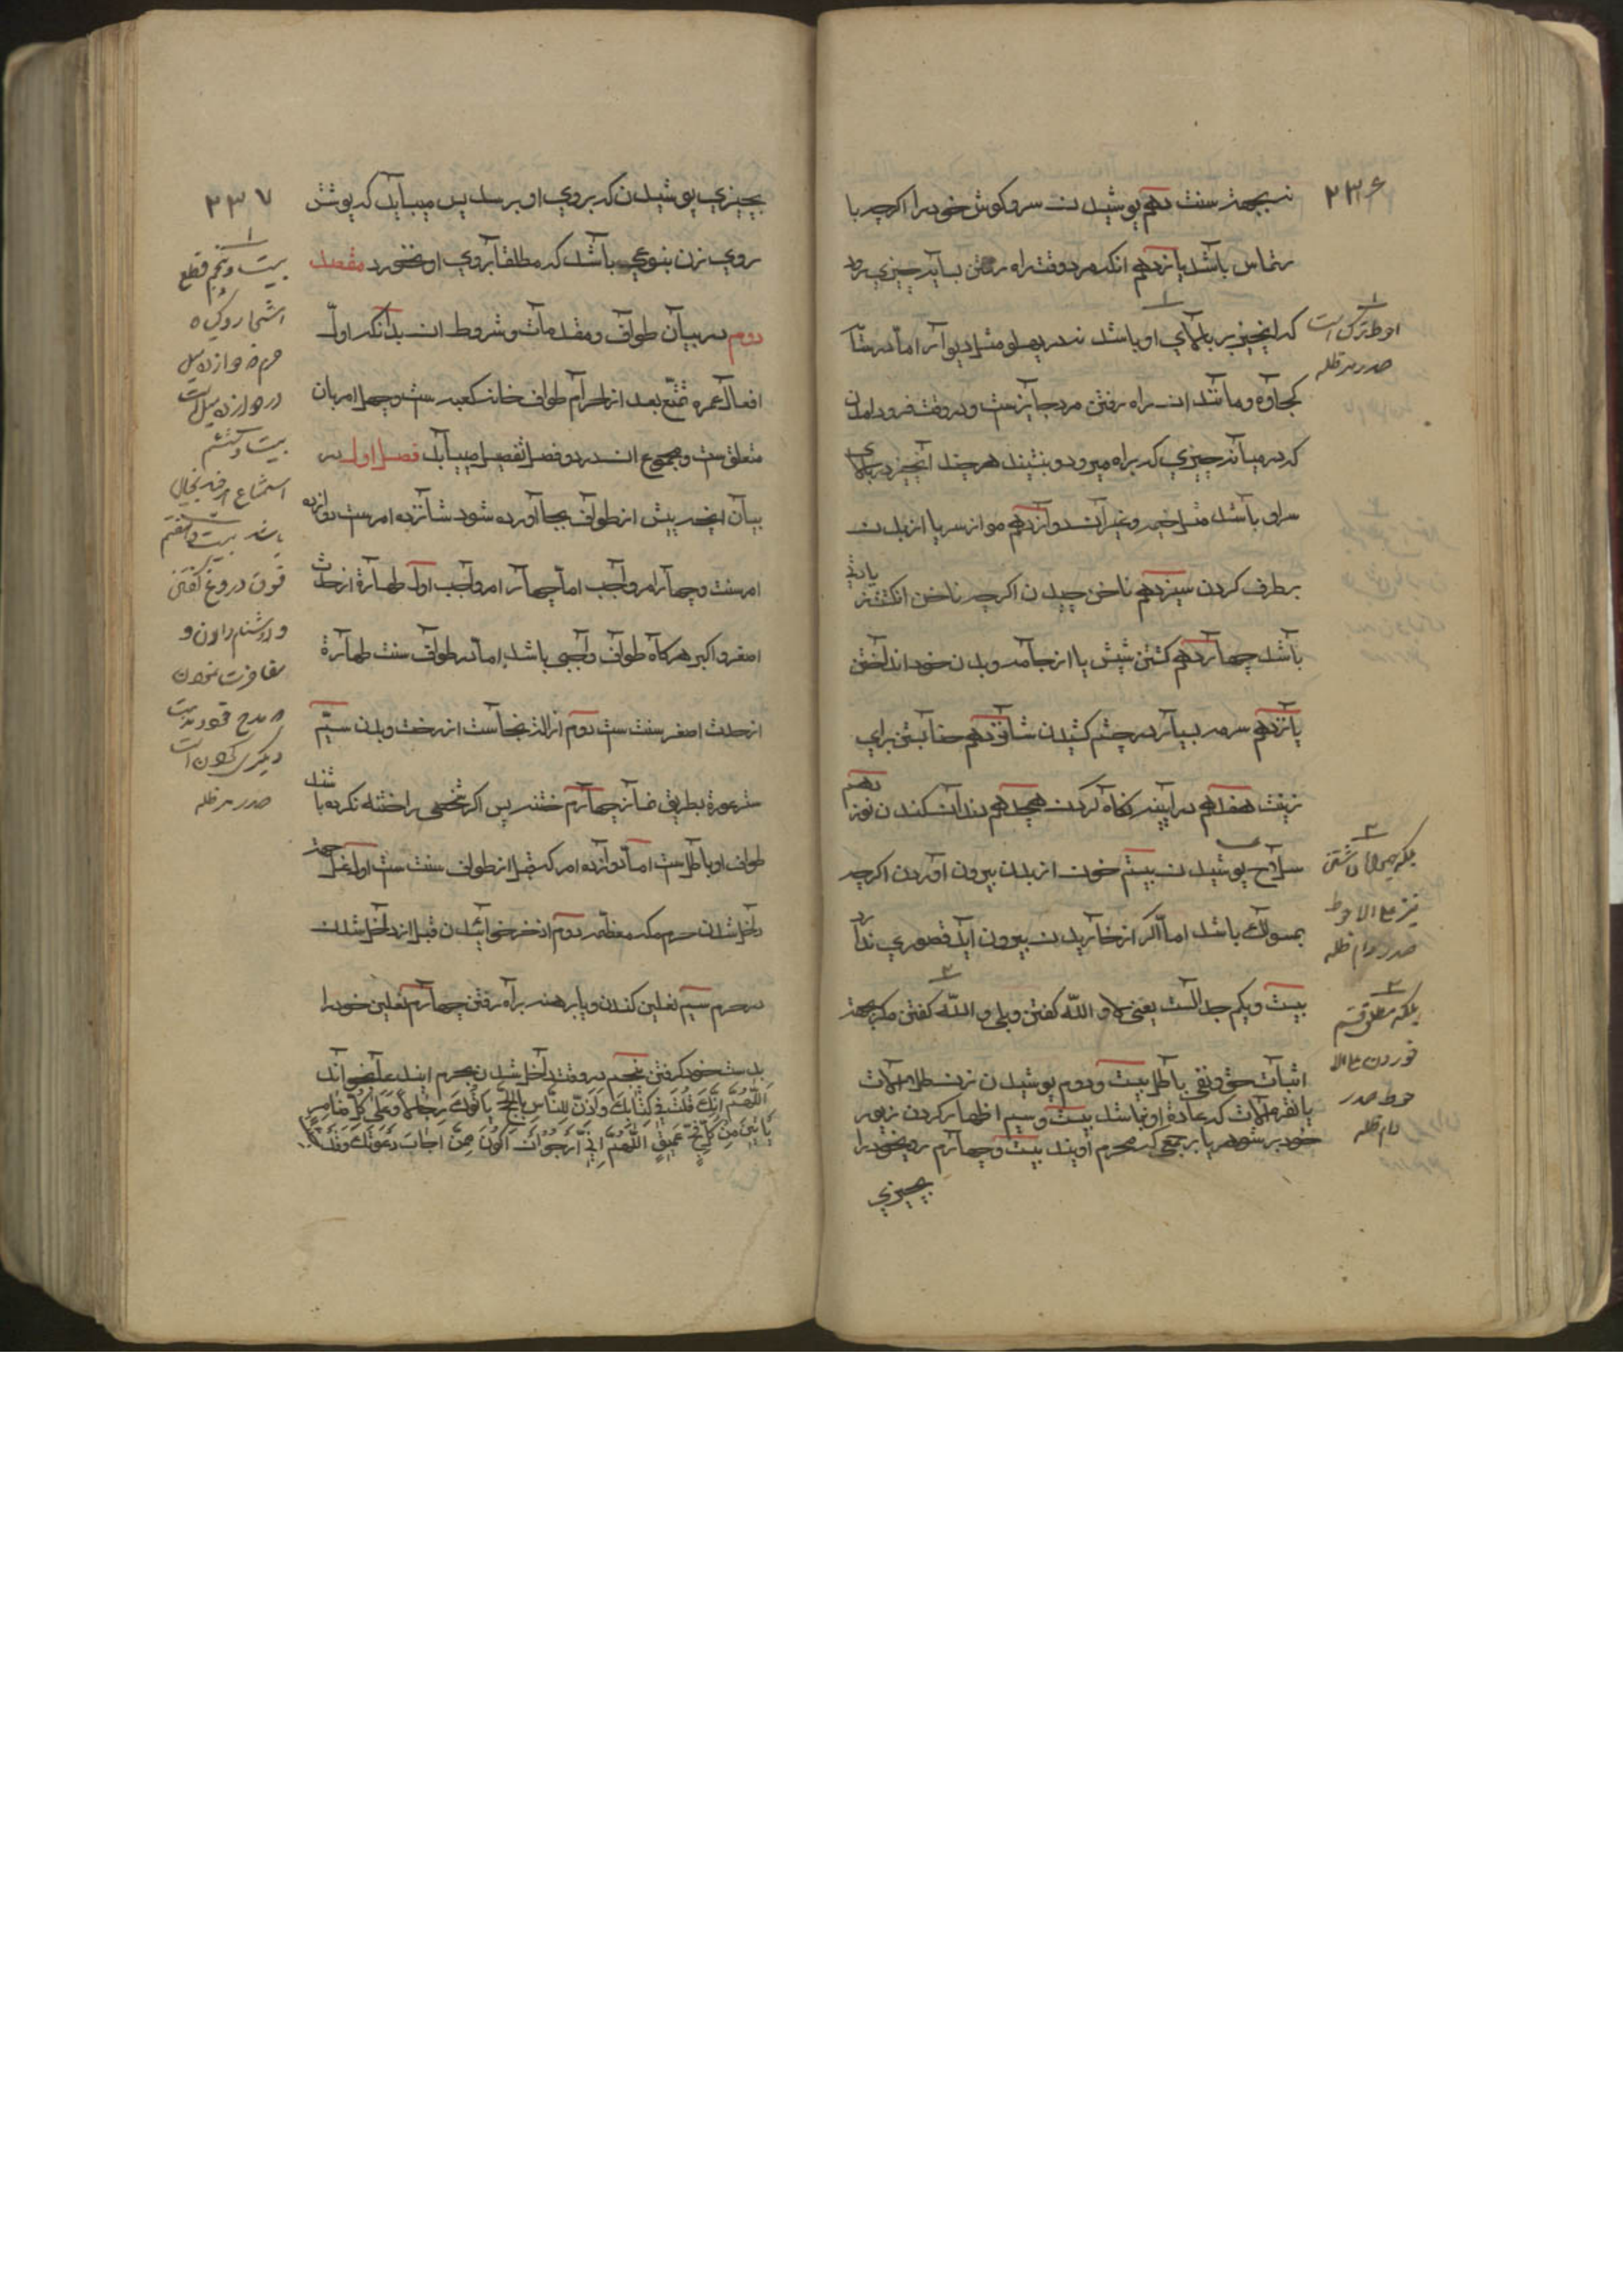 ۲۳۶
نه بجهة زینت دهم پوشیدن سر و کوش خود را اکرچه با
رتماس باشد یازدهم انکه مرد وقت راه رفتن بسایه چیزی رود
که انچیز بر بالای او باشد نه در پهلو مثل دیوار اما در مثل
کجاوه و مانند ان راه رفتن مرد جایز نیست و در وقت فرود امدن
که در میانه چیزی که براه میرود و بنشیند هر چند انچیز در بالای
سر او باشد مثل خیمه و غیر ان دوازدهم مو از سر یا از بدن
برطرف کردن سیزدهم ناخن چیدن اکرچه ناخن انکشت زیادتی
باشد چهاردهم کشتن شپش یا از جامه و بدن خود انداختن
پانزدهم سرمه سیاه در چشم کشیدن شانزدهم حنا بستن برای
زینت هفدهم در آیینه نکاه کردن هیجدهم دندان کندن نوزدهم
سلاح پوشیدن بیستم خون از بدن بیرون آوردن اکرچه
بمسواک باشد اما اکر از خاریدن بیرون آید قصوری ندارد
بیست و یکم جدالست یعنی لا و اللّه کفتن و بلی و اللّه کفتن مکر بجهة
اثبات حق و نفی باطل بیست و دوم پوشیدن زن طلا آلات
یا نقره آلات که عادة او نباشد بیست و سیم اظهار کردن زیور
خود بر شوهر یا بر جمعی که محرم اویند بیست و چهارم روی خود را
بچیزی
احوط ترک است
صدر مد ظله
بلکه همراه داشتن
نیز علی الاحوط
صدر دام ظله
بلکه مطلق قسم
خوردن علی الا
حوط صدر
دام ظله
۲۳۷
بچیزی پوشیدن که بروی او برسد پس میباید که پوشش
روی زن بنوعی باشد که مطلقا بروی او نخورد مقصد
دوم در بیان طواف و مقدمات و شروط ان بدانکه اول
افعال عمره تمتع بعد از احرام طواف خانه کعبه است و چهل امر بان
متعلق است و مجموع ان در دو فصل تفصیل مییابد فصل اول در
بیان انچه پیش از طواف بجا آورده شود شانزده امر است دوازده
امر سنت و چهار امر واجب اما چهار امر واجب اول طهارة از حدث
اصغر و اکبر هرکاه طواف واجبی باشد اما در طواف سنت طهارة
از حدث اصغر سنت است دوم ازاله نجاست از رخت و بدن سیّم
ستر عورة بطریق نماز چهارم ختنه پس اکر شخصی را ختنه نکرده باشند
طواف او باطل است اما دوازده امر که قبل از طواف سنت است اول غسل جهة
داخل شدن حرم مکه معظمه دوم اذخر خوائیدن قبل از داخل شدن
در حرم سیم نعلین کندن و پا برهنه براه رفتن چهارم نعلین خود را
بدست خود کرفتن پنجم در وقت داخل شدن حرم ایندعا خواند
اَللّهُمَّ اِنَّكَ قُلْتَ فِي كِتَابِكَ وَاَذِّنْ لِلنَّاسِ بِالْحَجِّ يَأْتُوكَ رِجَالًا وَعَلَى كُلِّ ضَامِرٍ
يَأْتِينَ مِنْ كُلِّ فَجٍّ عَمِيقٍ اَللّهُمَّ اِنِّي اَرْجُو اَنْ اَكُونَ مِمَّنْ اَجَابَ دَعْوَتَكَ وَقَدْ
بیست و پنجم قطع
اشجار و کیاه
حرم خواه از ده میل
بیست و ششم
استماع
باشد بیست و هفتم
فسوق دروغ کفتن
و دشنام دادن و
مفاخرت نمودن
دیکری کردن است
صدر مد ظله